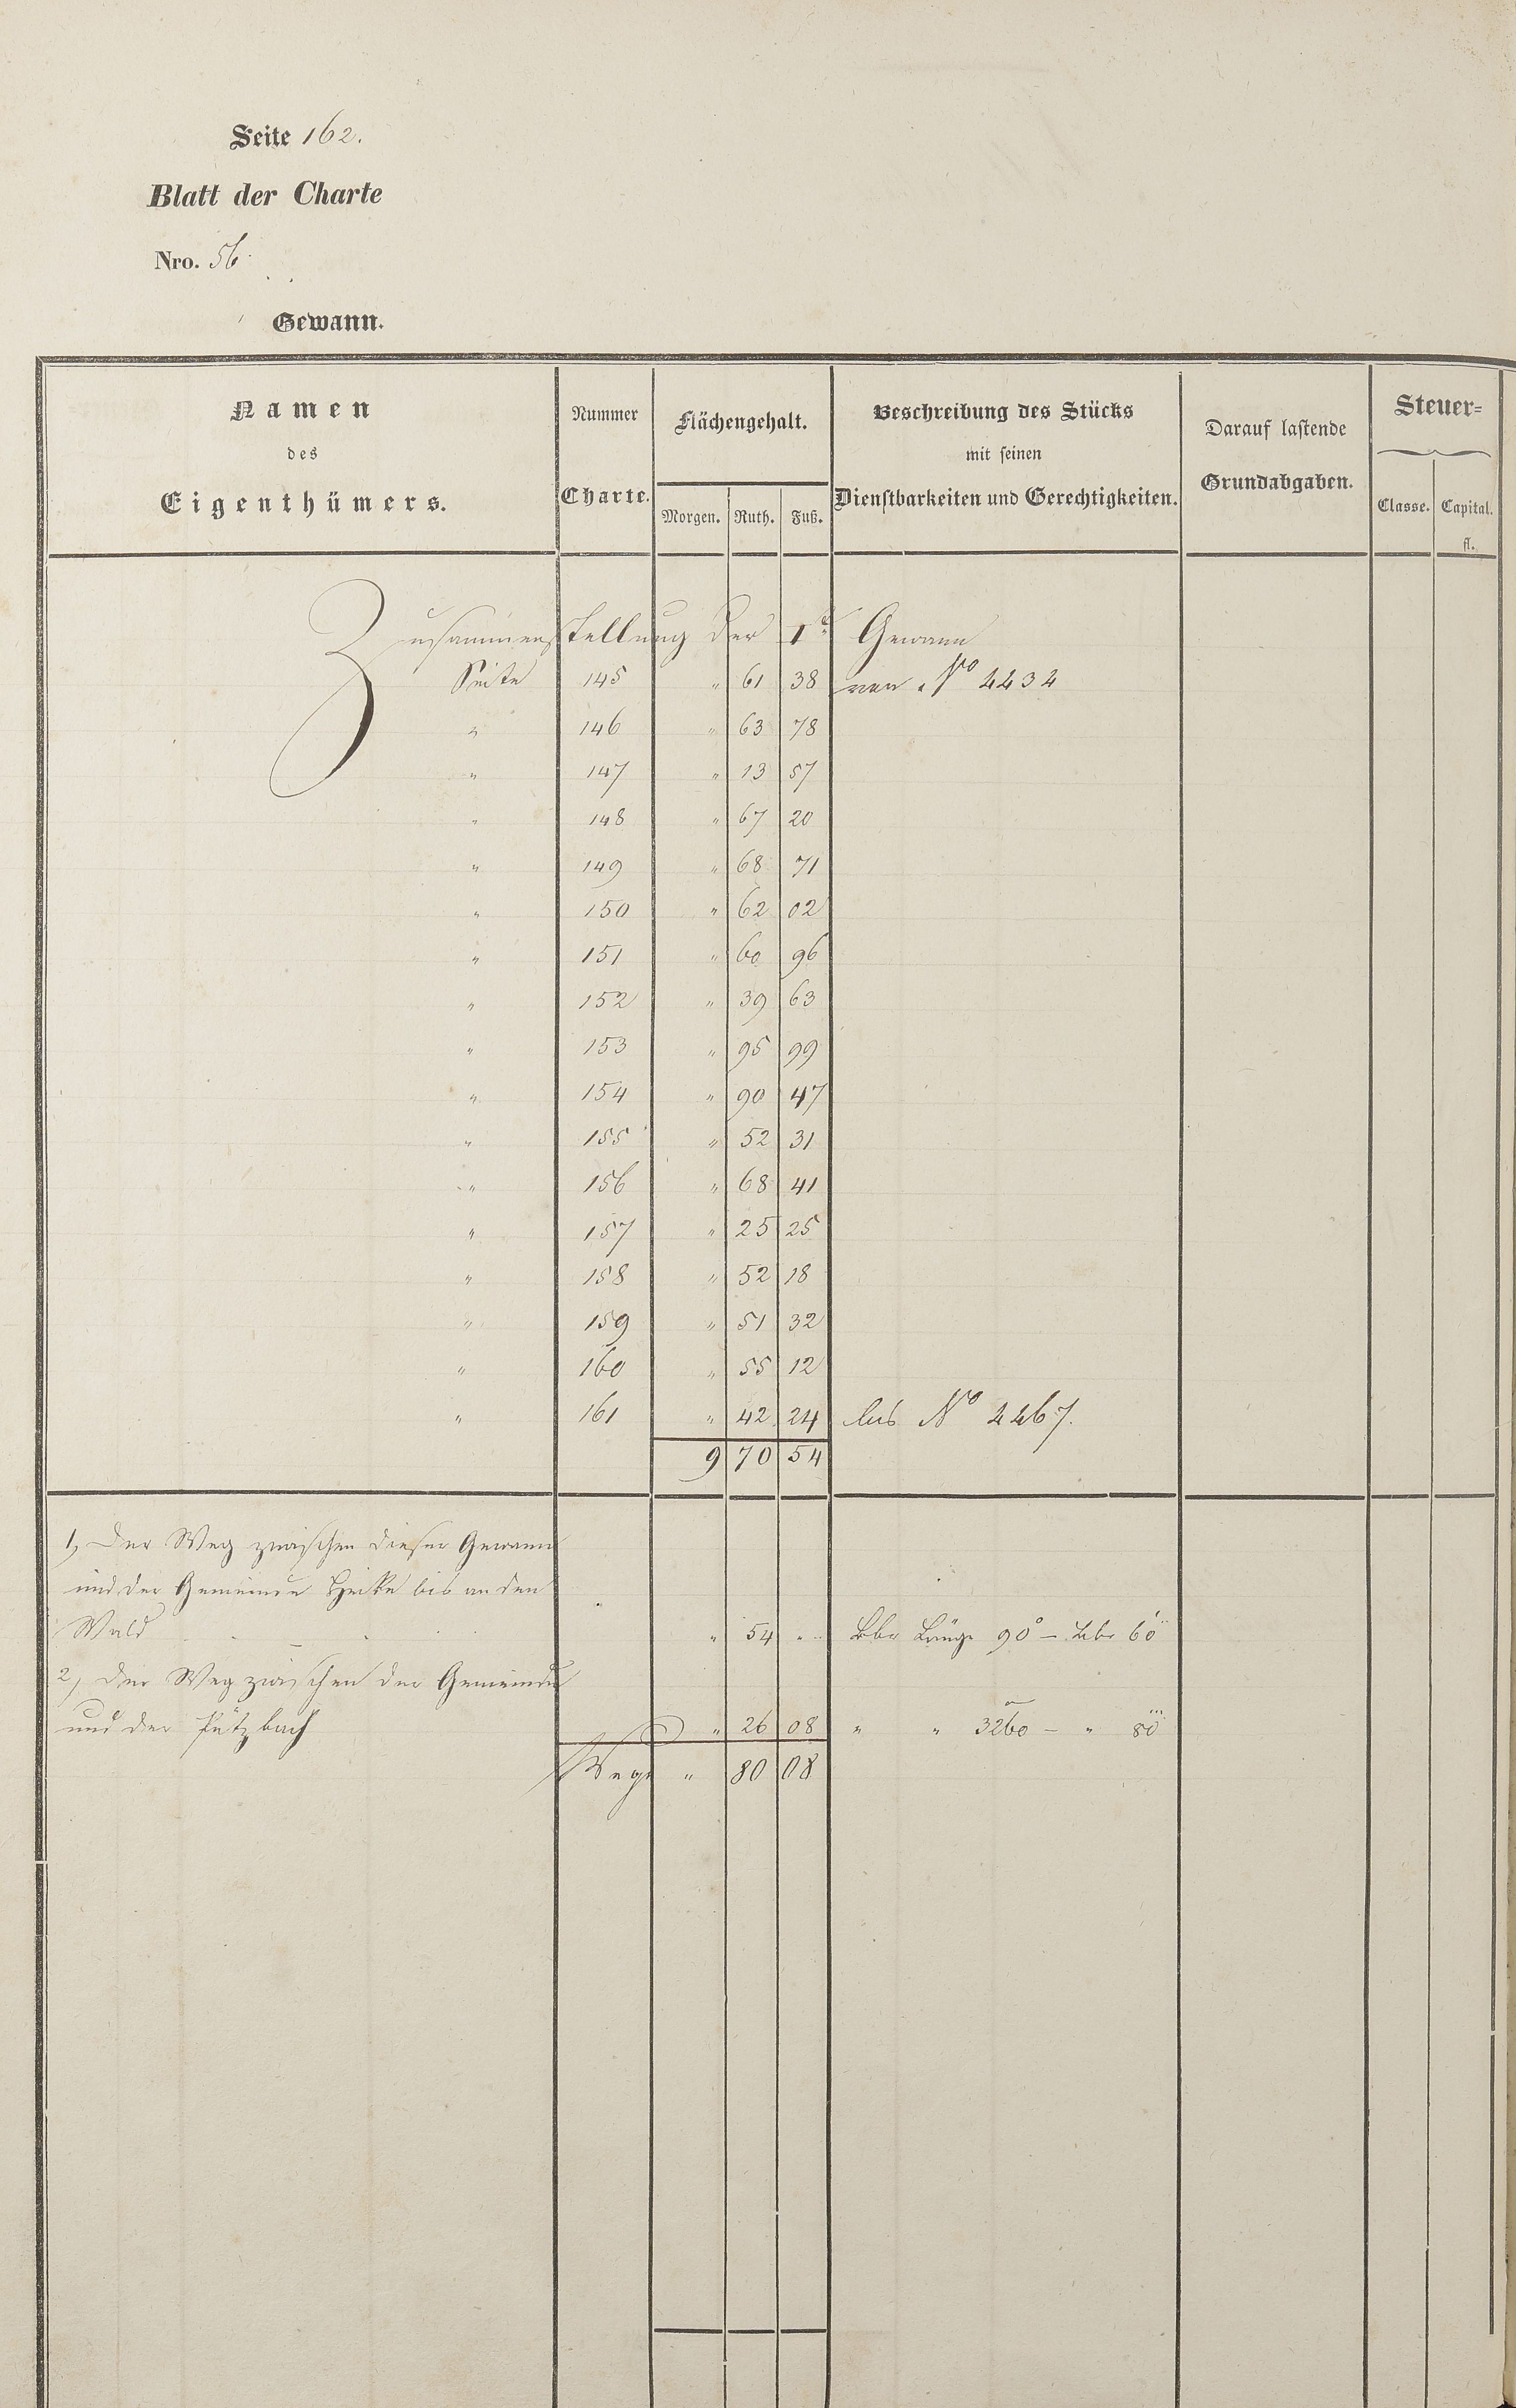 Seite 162.
Blatt der Charte
Nro. 56.
Gewann.
Namen
des
Eigenthümers.
Nummer
Charte.
Flächengehalt.
Morgen. Ruth. Fuß.
Beschreibung des Stücks
mit seinen
Dienstbarkeiten und Gerechtigkeiten.
Darauf lastende
Grundabgaben.
Steuer=
Classe. Capital.
fl.
Zusammenstellung der 1t Gewann
Seite 145 " 61 38 von No 2232
" 146 " 63 78
" 147 " 13 57
" 148 " 67 20
" 149 " 68 71
" 150 " 62 02
" 151 " 60 96
" 152 " 39 63
" 153 " 95 99
" 154 " 90 47
" 155 " 52 31
" 156 " 68 41
" 157 " 25 25
" 158 " 52 18
" 159 " 51 32
" 160 " 55 12
" 161 " 42 24 bis No 2267.
9 70 54
1, Der Weg zwischen dieser Gewann
und der Gemeinde Hecke bis an den
Wald " 54 " Länge 90° — 60
2, Der Weg zwischen der Gemeinde
und der Pützbach " 26 08 " " 3260 — " 80
Wege " 80 08